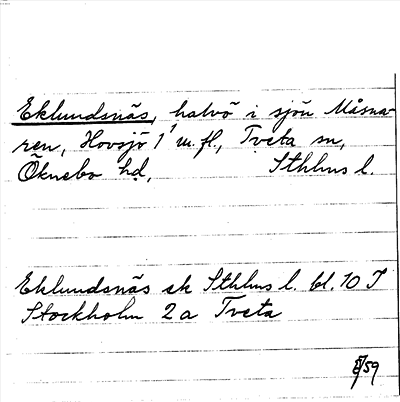 Eklundsnäs, halvö i sjön Måsna-
ren, Hovsjö 1¹ m.fl., Tveta sn,
Öknebo hd, Sthlms l.
Eklundsnäs ek Sthlms l. bl. 10 I
Stockholm 2a Tveta
/59